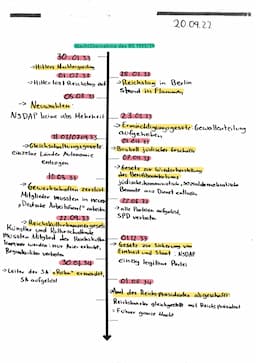 20.09.22
Machtübernahme der NS 1933/34
30.01.33
→ Hitlers Machtergreifung
01.02.33
→ Hitler löst Reichstag auf
28.02.33
→ Reichstag in Berlin
stand in Flammen
05.03.33
→ Neuwahlen:
NSDAP keine abs. Mehrheit
23.03.33
→ Ermächtigungsgesetz: Gewaltenteilung
aufgehoben
31.03/07.04.33
→ Gleichschaltungsgesetze
einzelne Länder Autonomie
entzogen
01.04.33
→ Boykott jüdischer Geschäfte
07.04.33
→ Gesetz zur Wiederherstellung
des Berufsbeamtentums
jüdische, kommunistisch, sozialdemokratische
Beamte aus Dienst entlassen
→ Gewerkschaften zerstört
Mitglieder mussten in neue
„Deutsche Arbeitsfront" eintreten
22.06.33
→ alle Parteien aufgelöst,
SPD verboten
22.09.33
→ Reichskulturkammergesetz
Künstler und Kulturschaffende
mussten Mitglied der Reichskultur-
kammer werden
01.12.33
→ Gesetz zur Sicherung von
Einheit und Staat: NSDAP
einzig legitime Partei
30.01.34
→ Leiter der SA „Röhm" ermordet,
SA aufgelöst
01.08.34
Amt des Reichspräsidenten abgeschafft
Reichskanzler gleichgestellt mit Reichspräsident
= Führer ganze Macht